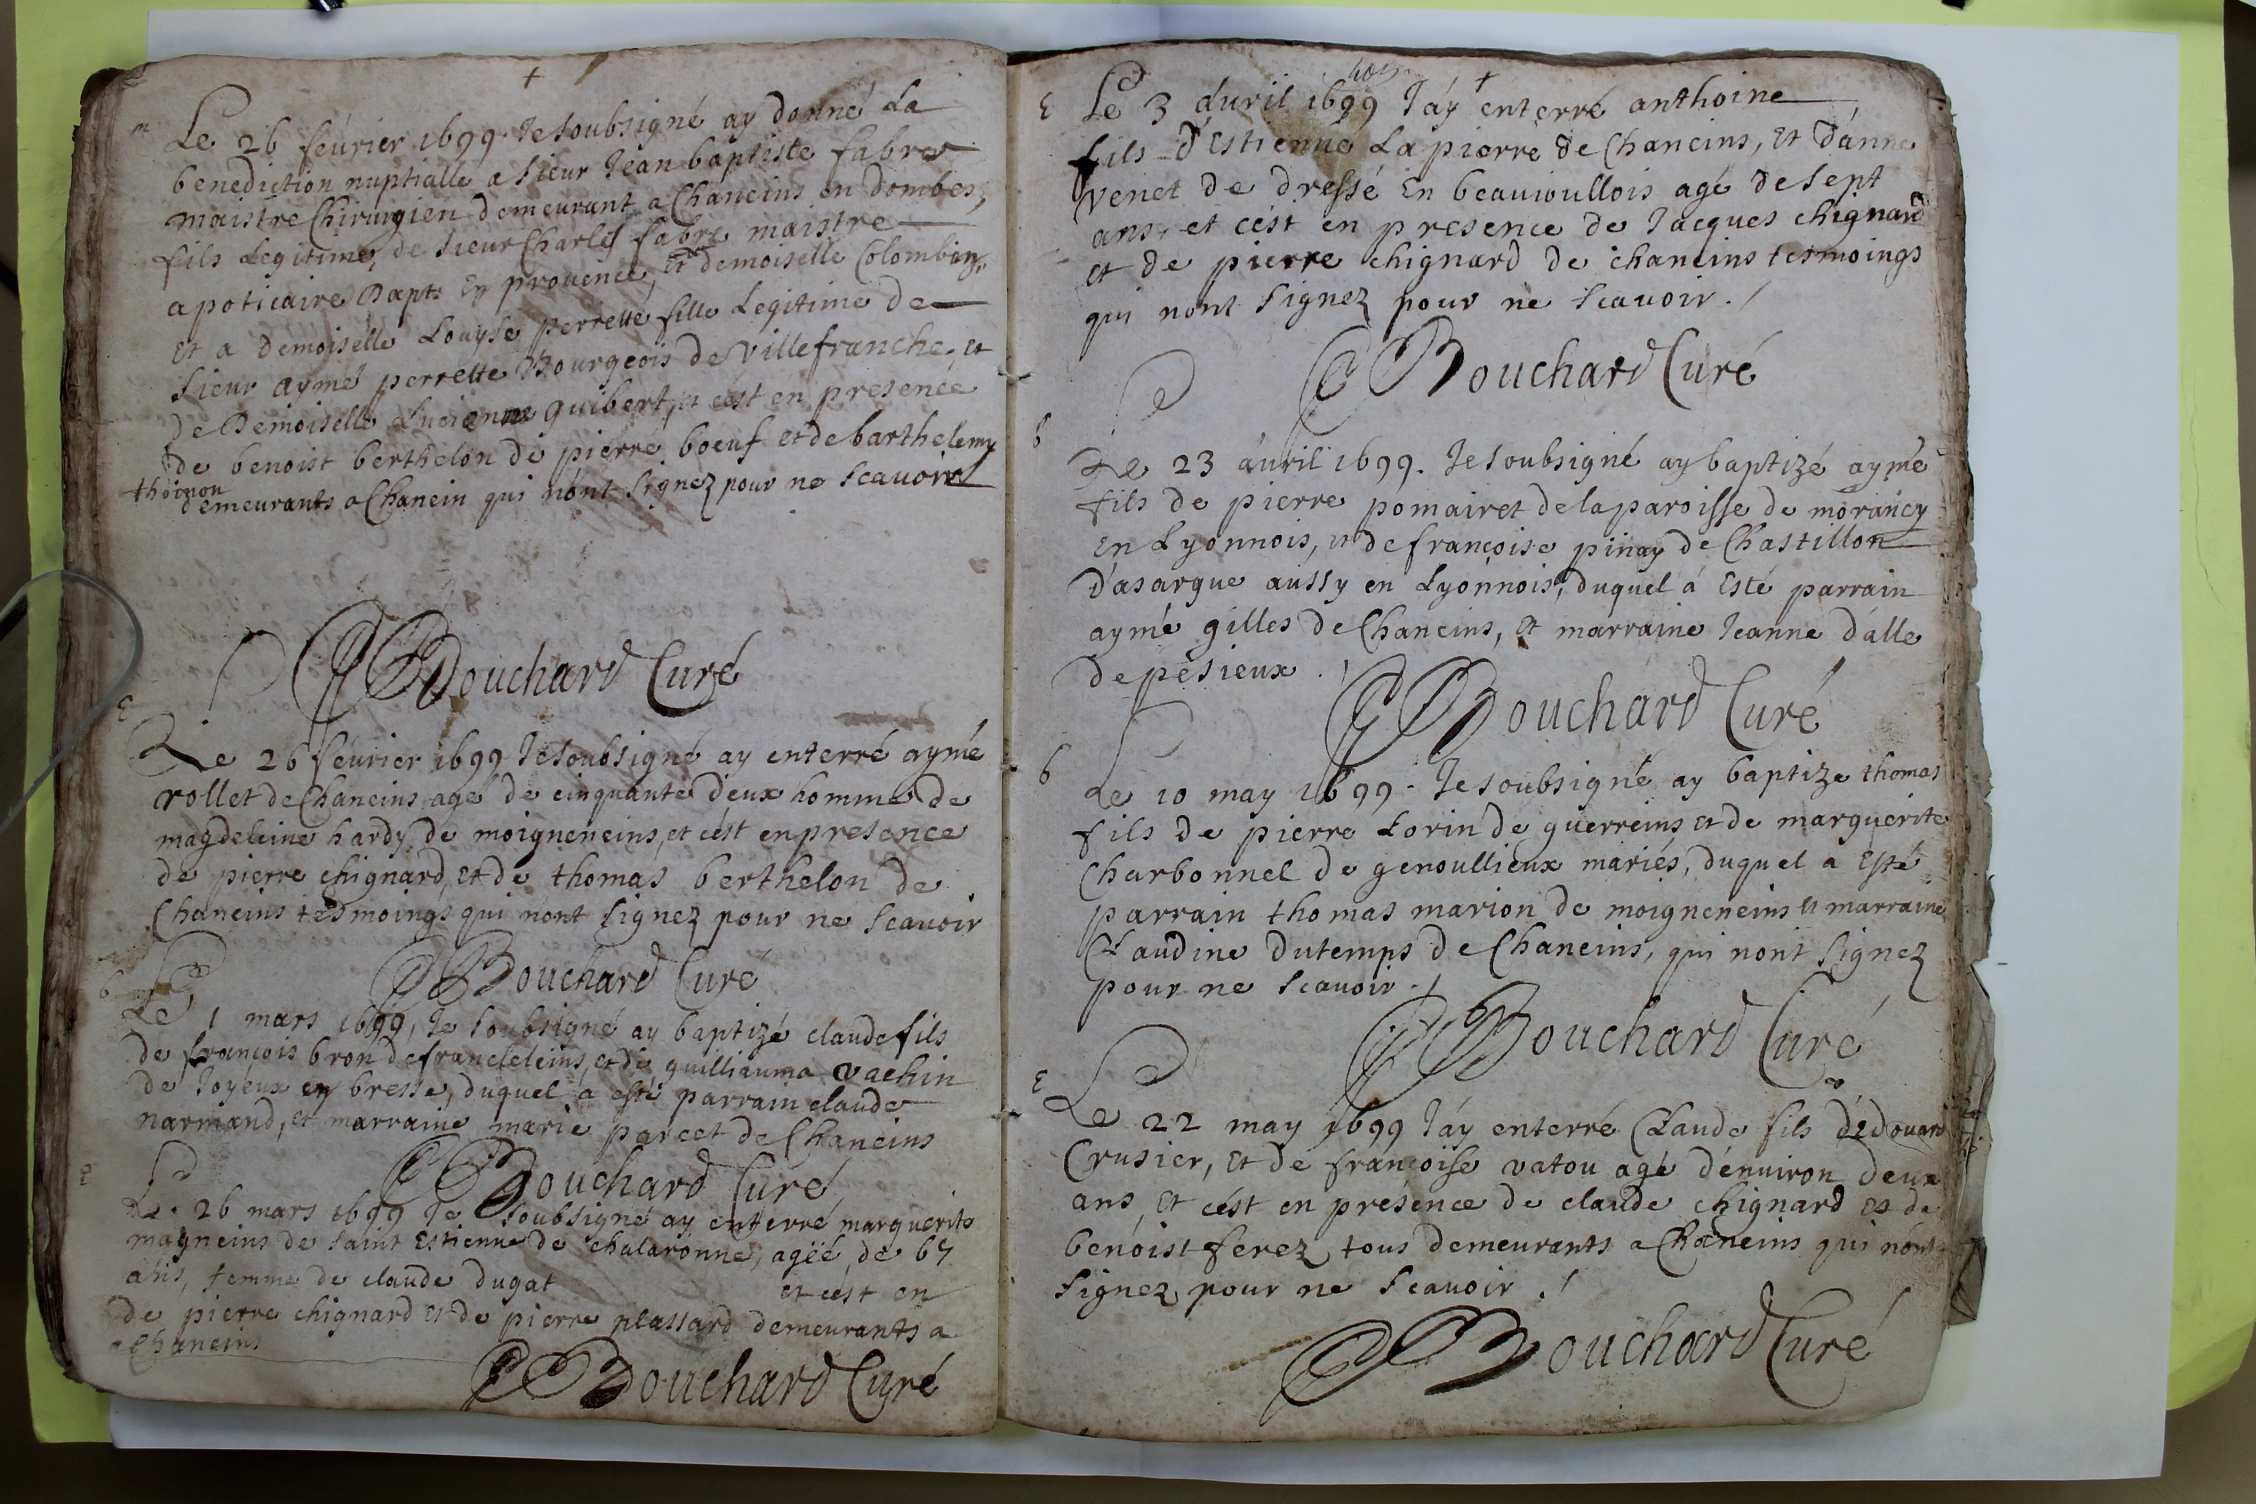 m
Le 26 feúrier 1699. Je soubsigné ay donné La
benediction nuptialle a sieur Jean baptiste fabre
maistre Chirurgien demeurant a Chaneins en dombes,
fils Legitime, de sieur Charles fabre maistre
apoticaire Dapts En prouence, et demoiselle Colombin,
Et a demoiselle Louyse perrette fille Legitime de
sieur aymé perrette Bourgeois de Villefranche, et
de Demoiselle Lucienne guibert, et cest en presence
de benoist berthelon de pierre boeuf et de barthelemy
thoinon
demeurants a Chanein qui nónt signez pour ne scauoir
Bouchard Curé
E
Le 26 féurier 1699 Je soubsigné ay enterré aymé
rollet de Chaneins, agé de cinquante deux homme de
magdeleine hardy de moigneneins, et cést en presence
de pierre chignard, et de thomas berthelon de
Chaneins tesmoings qui nont signez pour ne scauoir
Bouchard Curé
b
Le 1 mars 1699, Je soubsigné ay baptizé claude fils
de françois bron de francleleins, et de guilliauma vachin
de Joyéux en bresse, duquel a esté parrain claude
narmand, et marraine marie parcet de Chaneins
Bouchard Curé
E
Le. 26 mars 1699 Je soubsigné ay enterré marguerite
magneins de saint Estienne de chalaronne, agéé, de 67
ans, femme de claude dugat et cést en
de pierre chignard et de pierre plassard demeurants a
Chaneins
Bouchard Curé
E
Le 3 áuril 1699 J'áy enterré anthoine
fils d'Estienne Lapierre de Chaneins, et d'ánne
venet de dressé En beauioullois agé de sept
ans, et cést en presence de Jacques chignard
et de pierre chignard de chaneins tesmoings
qui nont signez pour ne scauoir.
Bouchard Curé
b
Le 23 áuril 1699. Je soubsigné ay baptizé aymé
fils de pierre pomairet de la paroisse de morancy
En Lyonnois, et de françoise pinay de Chastillon
d'asargue aussy en Lyonnois, duquel á Esté parrain
aymé gilles de Chaneins, et marraine Jeanne dálle
de pésieux.
Bouchard Curé
b
Le 10 may 1699. Je soubsigné ay baptize thomas
fils de pierre Lorin de guerreins et de marguerite
Charbonnel de genoullieux mariés, duquel a Esté
parrain thomas marion de moigneneins et marraine
Claudine dutemps de Chaneins, qui nont signez
pour ne scauoir.
Bouchard Curé
E
Le 22 may 1699 J'áy enterré Claude fils d'édouard
Crusier, et de françoise vatou agé dénuiron deux
ans, et cést en présence de claude chignard et de
benoist ferez tous demeurants a Chaneins qui nónt
signez pour ne scauoir.
Bouchard Curé